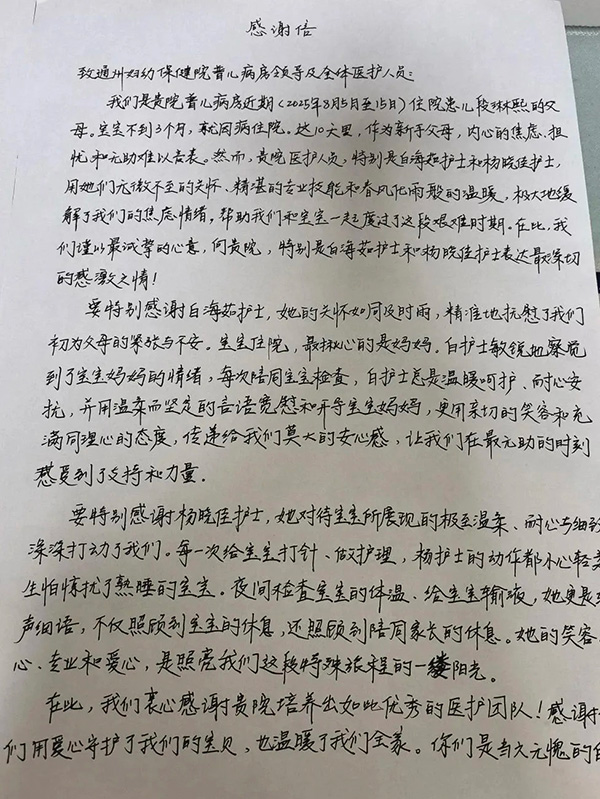 感谢信
致通州妇幼保健院普儿病房领导及全体医护人员:
我们是贵院普儿病房近期(2025年8月5日至15日)住院患儿段琳熙的父
母。宝宝不到3个月,就因病住院。这10天里,作为新手父母,内心的焦虑、担
忧和无助难以言表。然而,贵院医护人员,特别是白海茹护士和杨晓佳护士,
用她们无微不至的关怀、精湛的专业技能和春风化雨般的温暖,极大地缓
解了我们的焦虑情绪,帮助我们和宝宝一起度过了这段艰难时期。在此,我
们谨以最诚挚的心意,向贵院,特别是白海茹护士和杨晓佳护士表达最深切
的感激之情!
要特别感谢白海茹护士,她的关怀如同及时雨,精准地抚慰了我们
初为父母的紧张与不安。宝宝住院,最揪心的是妈妈。白护士敏锐地察觉
到了宝宝妈妈的情绪,每次陪同宝宝检查,白护士总是温暖呵护、耐心安
抚,并用温柔而坚定的言语宽慰和开导宝宝妈妈,更用亲切的笑容和充
满同理心的态度,传递给我们莫大的安心感,让我们在最无助的时刻
感受到了支持和力量。
要特别感谢杨晓佳护士,她对待宝宝所展现的极至温柔、耐心与细致
深深打动了我们。每一次给宝宝打针、做护理,杨护士的动作都小心轻柔
生怕惊扰了熟睡的宝宝。夜间检查宝宝的体温、给宝宝输液,她更是
声细语,不仅照顾到宝宝的休息,还照顾到陪同家长的休息。她的笑容、
心、专业和爱心,是照亮我们这段特殊旅程的一缕阳光。
在此,我们衷心感谢贵院培养出如此优秀的医护团队!感谢
们用爱心守护了我们的宝贝,也温暖了我们全家。你们是当之无愧的白